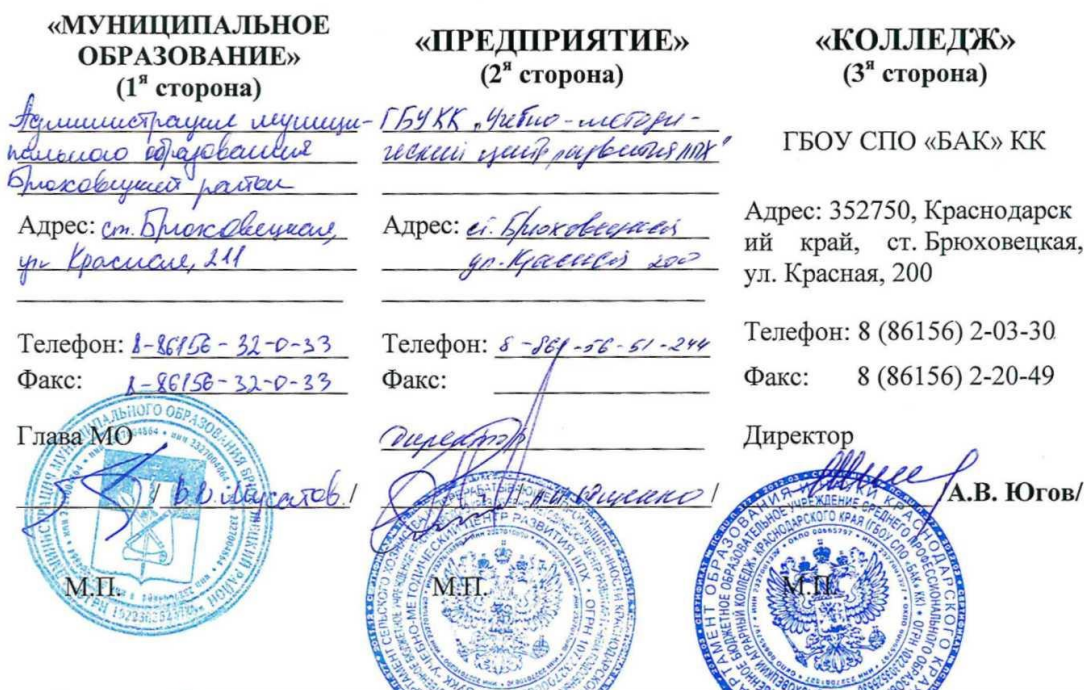 «МУНИЦИПАЛЬНОЕ
ОБРАЗОВАНИЕ»
(1я сторона)
Администрация муници-
пального образования
Брюховецкий район
Адрес: ст. Брюховецкая,
ул. Красная, 211
Телефон: 8-86156-32-0-33
Факс: 8-86156-32-0-33
Глава МО
/ В.В. Мусатов /
М.П.
«ПРЕДПРИЯТИЕ»
(2я сторона)
ГБУ КК „Учебно-методи-
ческий центр развития ЛПХ"
Адрес: ст. Брюховецкая
ул. Красная 200
Телефон: 8-861-56-51-244
Факс:
директор
М.П.
«КОЛЛЕДЖ»
(3я сторона)
ГБОУ СПО «БАК» КК
Адрес: 352750, Краснодарск
ий край, ст. Брюховецкая,
ул. Красная, 200
Телефон: 8 (86156) 2-03-30
Факс: 8 (86156) 2-20-49
Директор
/А.В. Югов/
М.П.